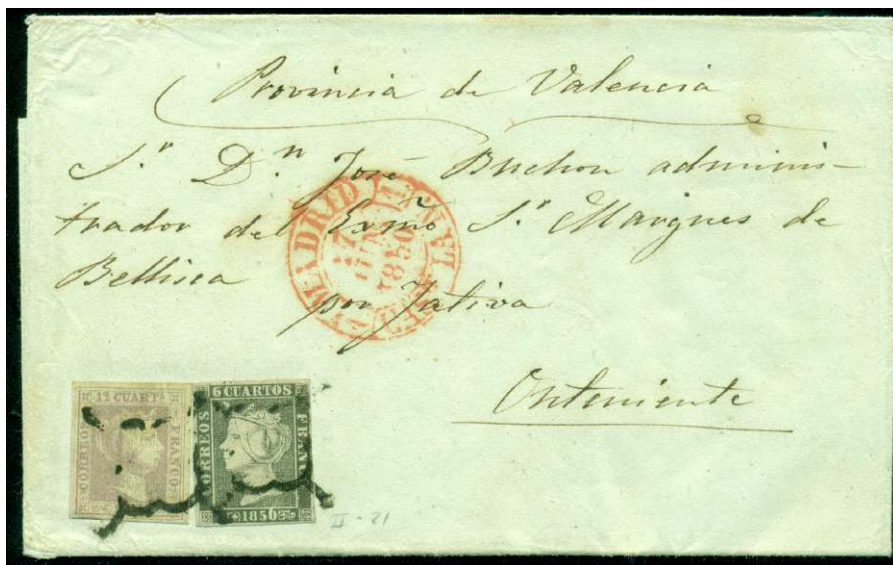 Provincia de Valencia
S.r D.n José Buchon adminis-
trador del Exmo S.r Marques de
Bellisca
por Jativa
Onteniente
MADRID
17
JUN
1850
12 CUARTs
CORREOS
FRANCO
6 CUARTOS
CORREOS
FRANCO
1850
II-21